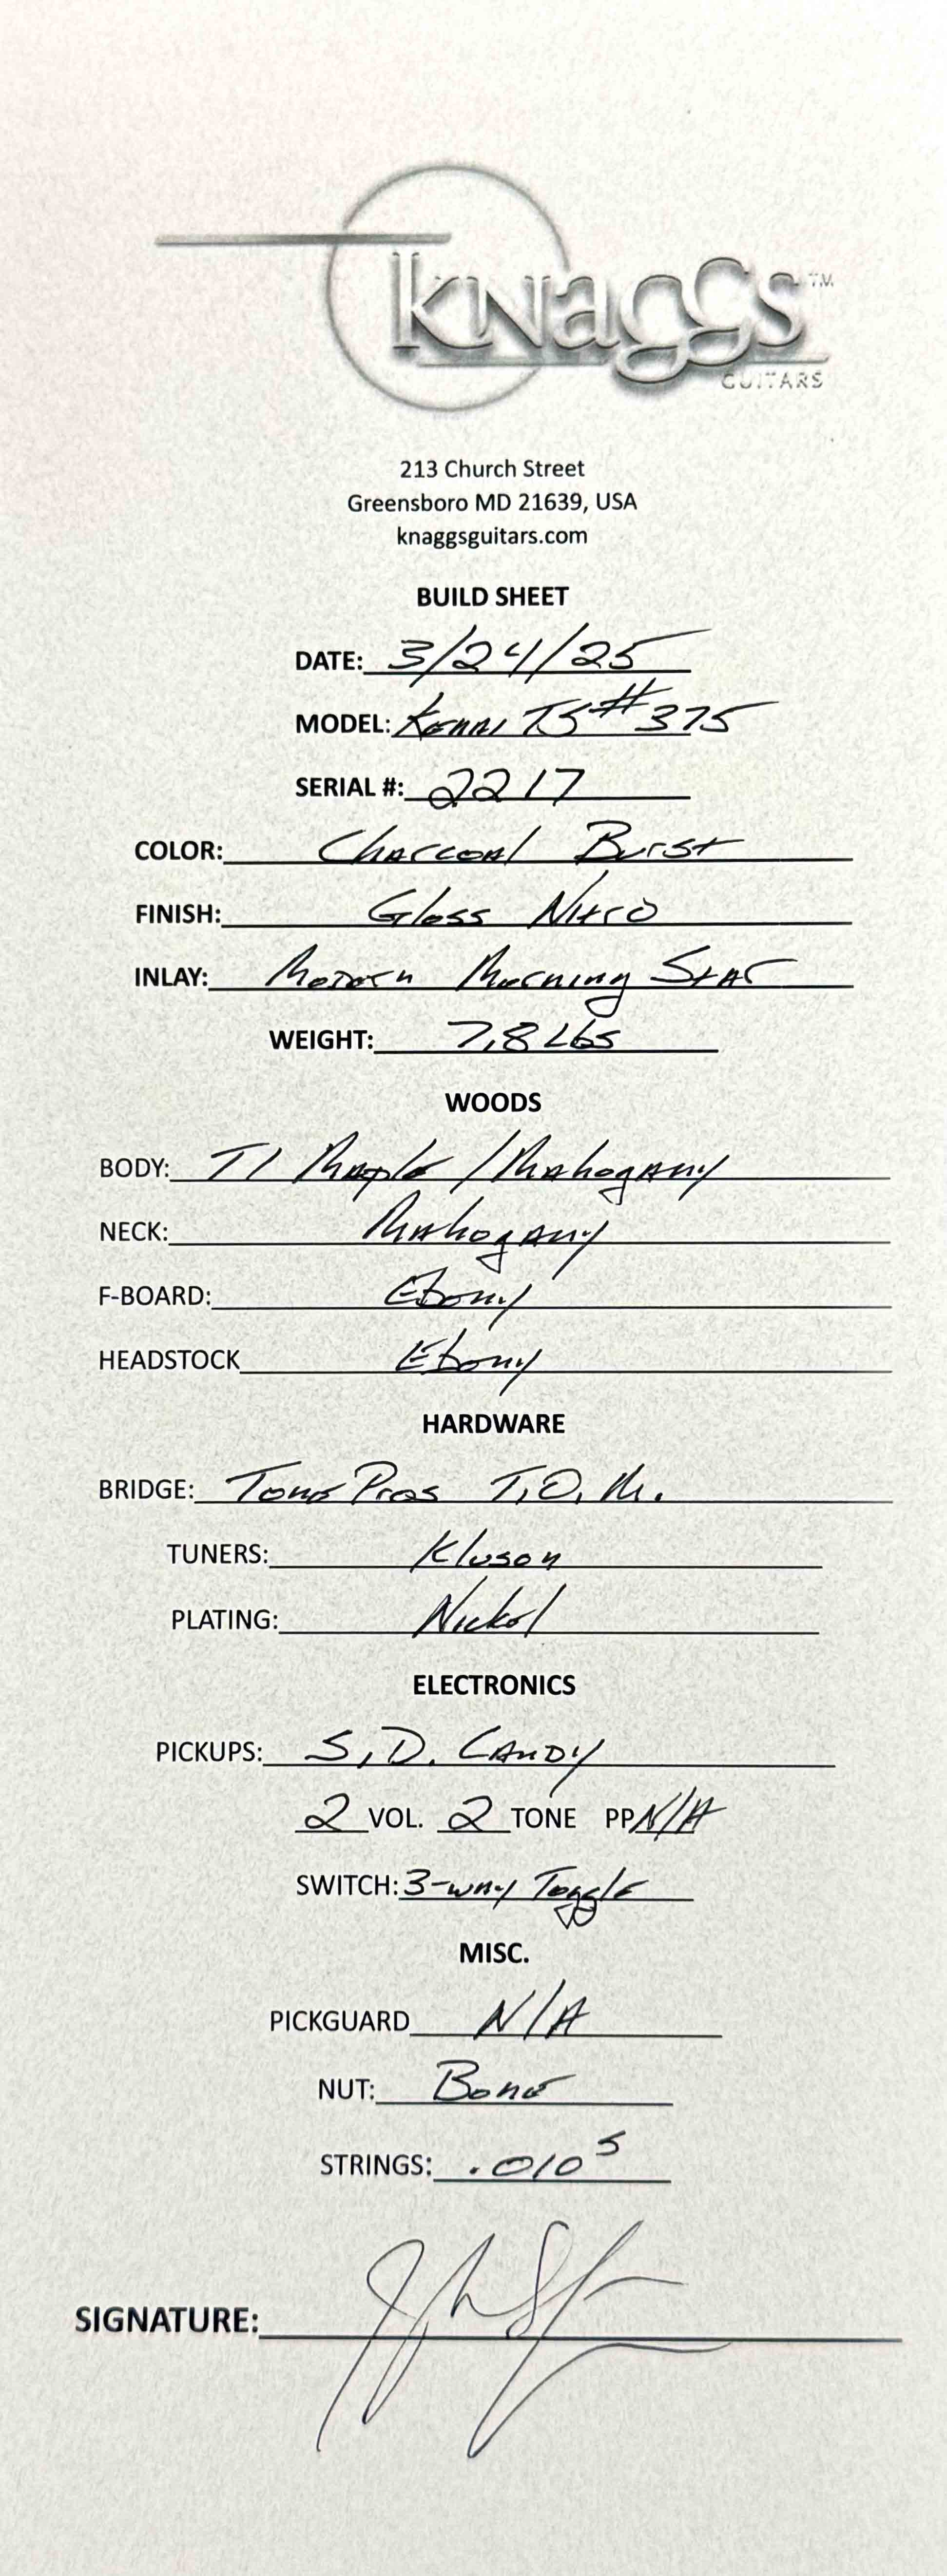 knaggs™
GUITARS
213 Church Street
Greensboro MD 21639, USA
knaggsguitars.com
BUILD SHEET
DATE: 3/24/25
MODEL: Kenai T5 #375
SERIAL #: 2217
COLOR: Charcoal Burst
FINISH: Gloss Nitro
INLAY: Modern Morning Star
WEIGHT: 7.8 Lbs
WOODS
BODY: T1 Maple / Mahogany
NECK: Mahogany
F-BOARD: Ebony
HEADSTOCK Ebony
HARDWARE
BRIDGE: Tone Pros T.O.M.
TUNERS: Kluson
PLATING: Nickel
ELECTRONICS
PICKUPS: S.D. Candy
2 VOL. 2 TONE PP N/A
SWITCH: 3-way Toggle
MISC.
PICKGUARD N/A
NUT: Bone
STRINGS: .010s
SIGNATURE: